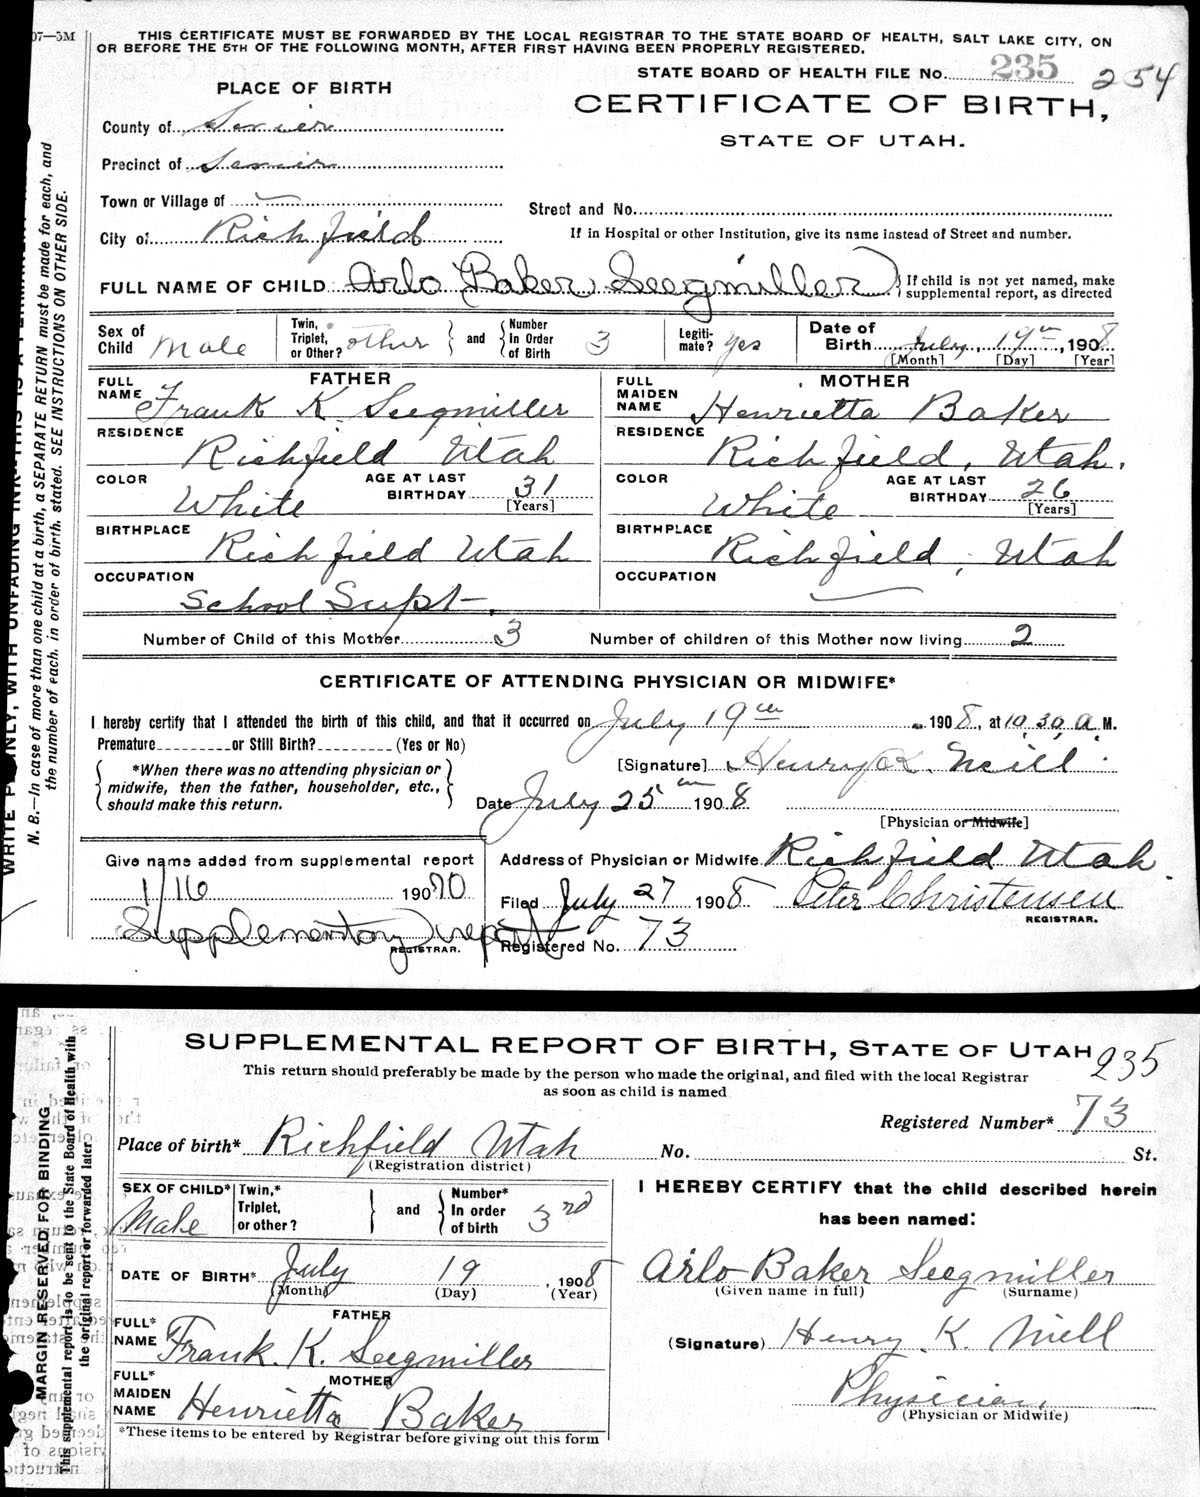 07—5M
THIS CERTIFICATE MUST BE FORWARDED BY THE LOCAL REGISTRAR TO THE STATE BOARD OF HEALTH, SALT LAKE CITY, ON
OR BEFORE THE 5TH OF THE FOLLOWING MONTH, AFTER FIRST HAVING BEEN PROPERLY REGISTERED.
STATE BOARD OF HEALTH FILE No. 235 254
PLACE OF BIRTH
CERTIFICATE OF BIRTH,
STATE OF UTAH.
County of Sevier
Precinct of Sevier
Town or Village of —
Street and No.
City of Richfield
If in Hospital or other Institution, give its name instead of Street and number.
FULL NAME OF CHILD Arlo Baker Seegmiller
If child is not yet named, make
supplemental report, as directed
Sex of Child Male
Twin, Triplet, or Other? other
and
Number In Order of Birth 3
Legiti- mate? Yes
Date of Birth July, 19th, 1908
[Month] [Day] [Year]
FATHER
FULL NAME Frank K Seegmiller
RESIDENCE Richfield Utah
COLOR White
AGE AT LAST BIRTHDAY 31 [Years]
BIRTHPLACE Richfield Utah
OCCUPATION School Supt.
MOTHER
FULL MAIDEN NAME Henrietta Baker
RESIDENCE Richfield, Utah.
COLOR White
AGE AT LAST BIRTHDAY 26 [Years]
BIRTHPLACE Richfield, Utah
OCCUPATION —
Number of Child of this Mother 3
Number of children of this Mother now living 2
CERTIFICATE OF ATTENDING PHYSICIAN OR MIDWIFE*
I hereby certify that I attended the birth of this child, and that it occurred on July 19th 1908, at 10.30 a M.
Premature or Still Birth? (Yes or No)
*When there was no attending physician or
midwife, then the father, householder, etc.,
should make this return.
[Signature] Henry K. Neill
Date July 25th 1908
[Physician or Midwife]
Give name added from supplemental report
1/16 19070
Supplementary report
REGISTRAR.
Address of Physician or Midwife Richfield Utah.
Filed July 27 1908 Peter Christensen
REGISTRAR.
Registered No. 73
N. B.—In case of more than one child at a birth, a SEPARATE RETURN must be made for each, and
the number of each, in order of birth, stated. SEE INSTRUCTIONS ON OTHER SIDE.
SUPPLEMENTAL REPORT OF BIRTH, STATE OF UTAH 235
This return should preferably be made by the person who made the original, and filed with the local Registrar
as soon as child is named
Registered Number* 73
Place of birth* Richfield Utah No. St.
(Registration district)
SEX OF CHILD* Male
Twin,* Triplet, or other?
and
Number* In order of birth 3rd
DATE OF BIRTH* July 19, 1908
(Month) (Day) (Year)
FATHER
FULL* NAME Frank. K. Seegmiller
MOTHER
FULL* MAIDEN NAME Henrietta Baker
*These items to be entered by Registrar before giving out this form
I HEREBY CERTIFY that the child described herein
has been named:
Arlo Baker Seegmiller
(Given name in full) (Surname)
(Signature) Henry K. Neill
Physician,
(Physician or Midwife)
MARGIN RESERVED FOR BINDING
This supplemental report is to be sent to the State Board of Health with
the original report or forwarded later